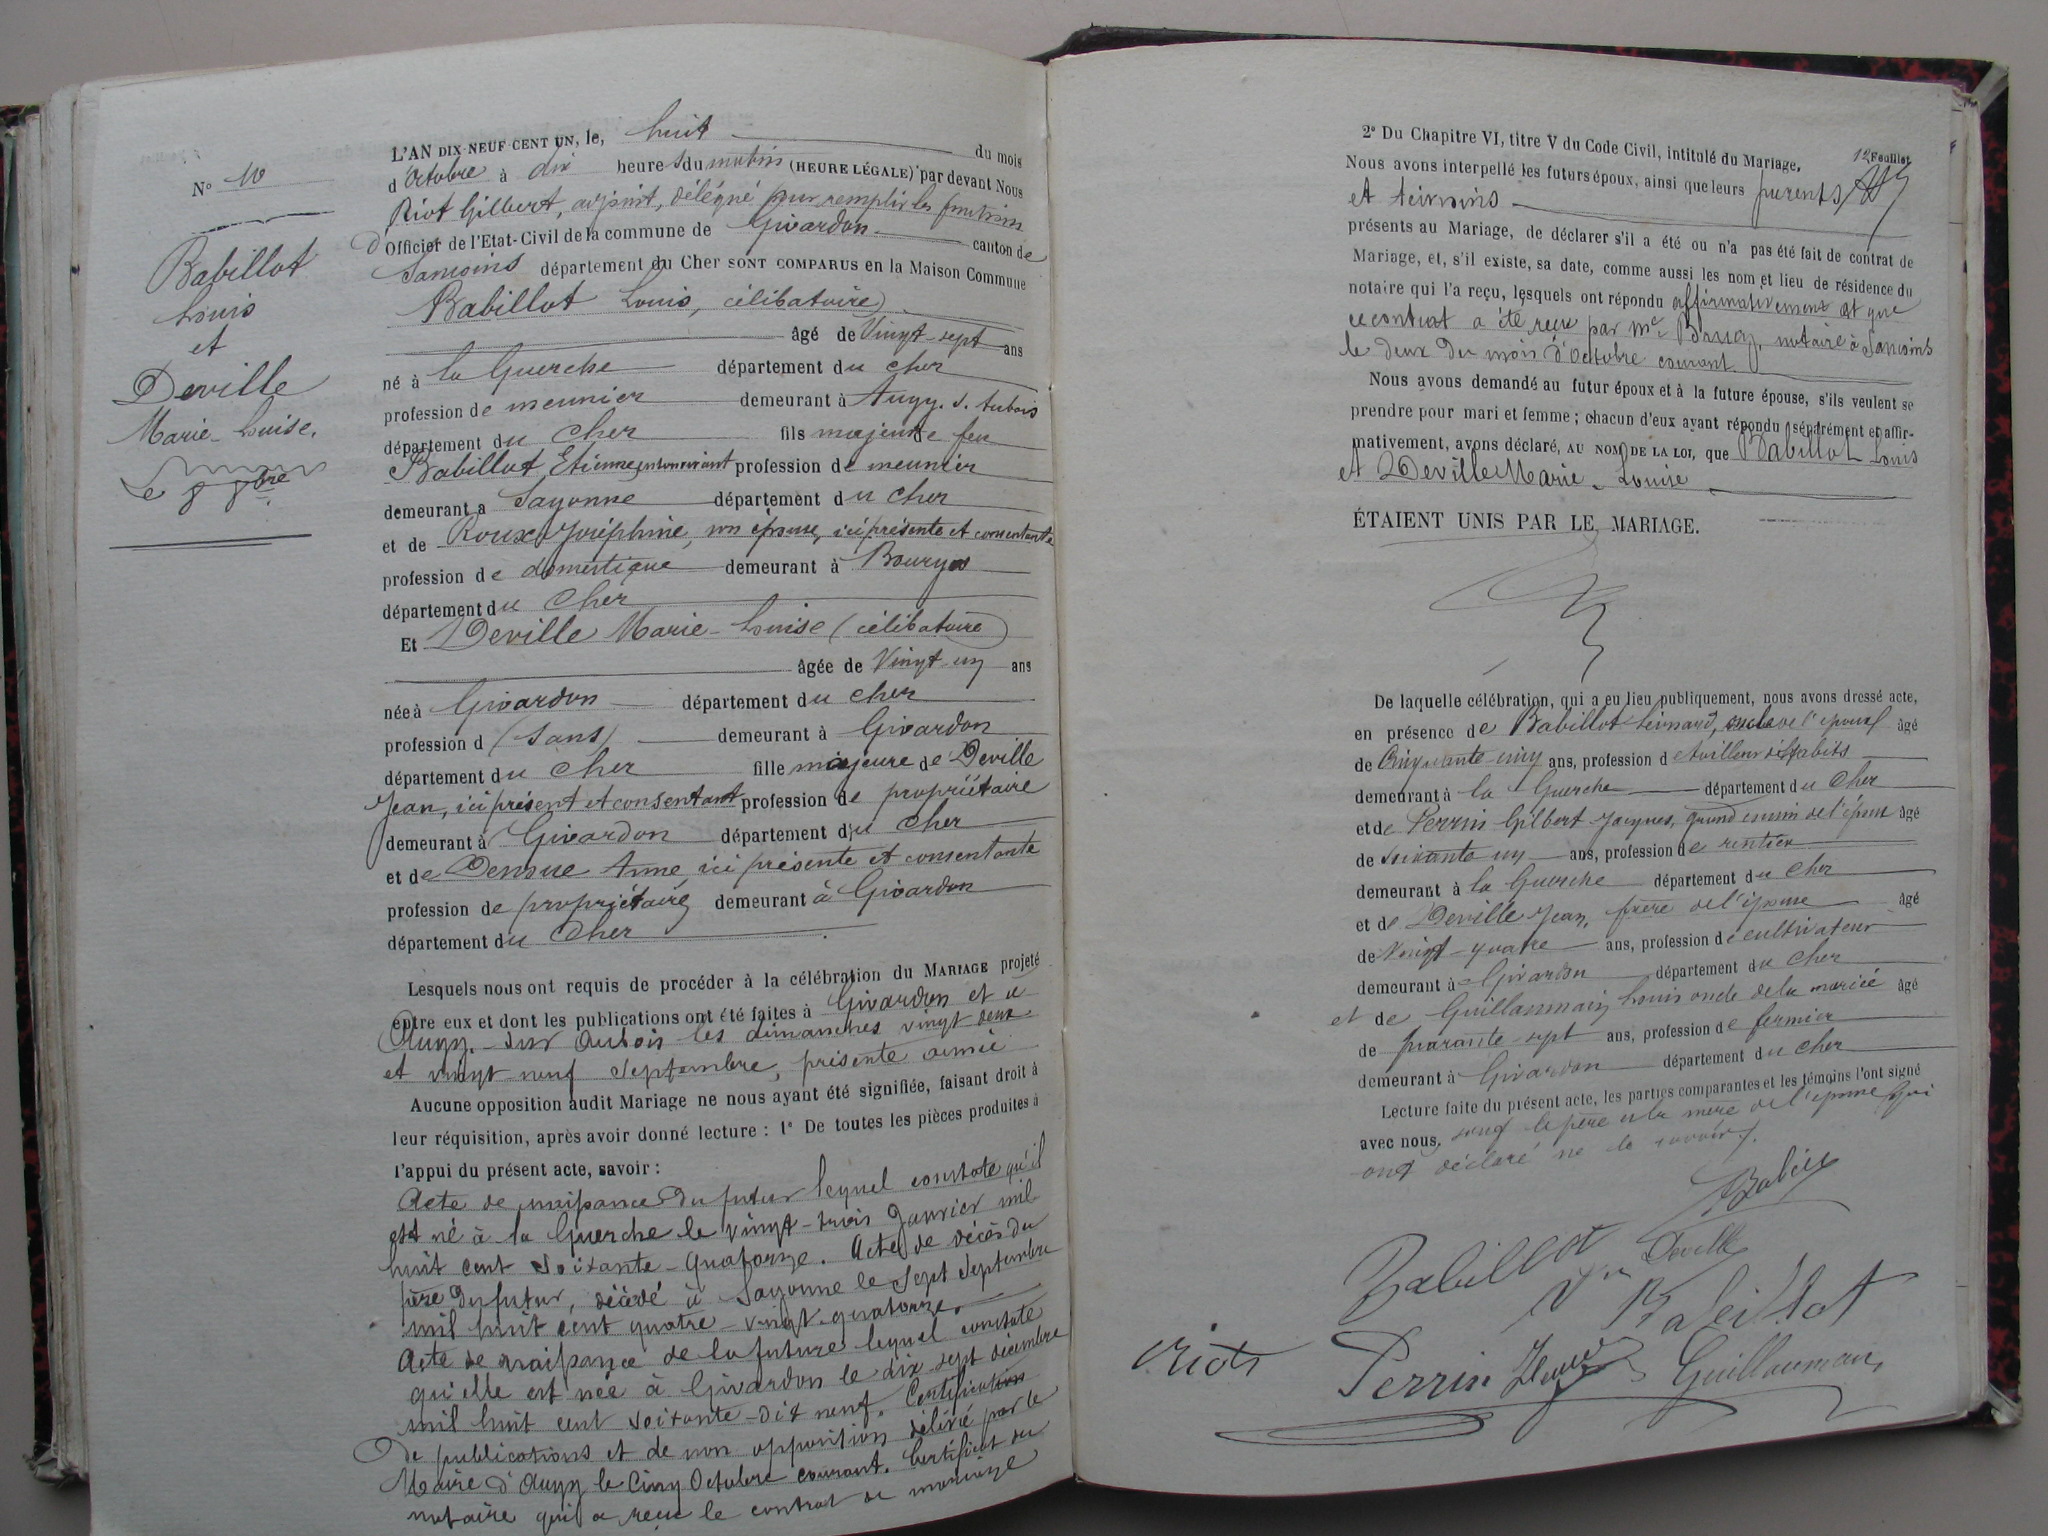 N° 10
Babillot
Louis
et
Deville
Marie-Louise.
Le 8 8bre
L'AN DIX-NEUF CENT UN, le, huit du mois
d'Octobre à dix heures du matin (HEURE LÉGALE) par devant Nous
Riot Gilbert, adjoint, délégué pour remplir les fonctions
d'Officier de l'Etat-Civil de la commune de Givardon canton de
Sancoins département du Cher SONT COMPARUS en la Maison Commune
Babillot Louis, célibataire)
âgé de Vingt-sept ans
né à la Guerche département du Cher
profession de meunier demeurant à Augy. s. Aubois
département du Cher fils majeur de feu
Babillot Etienne, en son vivant profession de meunier
demeurant a Sagonne département du Cher
et de Roux Joséphine, son épouse, ici présente et consentante
profession de domestique demeurant à Bourges
département du Cher
Et Deville Marie-Louise (célibataire)
âgée de Vingt-un ans
née à Givardon département du Cher
profession d (sans) demeurant à Givardon
département du Cher fille majeure de Deville
Jean, ici présent et consentant profession de propriétaire
demeurant à Givardon département du Cher
et de Anne ici présente et consentante
profession de propriétaire demeurant à Givardon
département du Cher
Lesquels nous ont requis de procéder à la célébration du MARIAGE projeté
entre eux et dont les publications ont été faites à Givardon et à
Augy-sur Aubois les dimanches vingt deux
et vingt neuf Septembre, présente année
Aucune opposition audit Mariage ne nous ayant été signifiée, faisant droit à
leur réquisition, après avoir donné lecture : 1° De toutes les pièces produites à
l'appui du présent acte, savoir :
Acte de naissance du futur lequel constate qu'il
est né à la Guerche le vingt-trois Janvier mil
huit cent Soixante-Quatorze. Acte de décès du
père du futur, décédé à Sagonne le Sept Septembre
mil huit cent quatre-vingt-quatorze.
Acte de naissance de la future lequel constate
qu'elle est née à Givardon le dix sept décembre
mil huit cent soixante-dix neuf. Certification
de publications et de non opposition délivré par le
Maire d'Augy le Cinq Octobre courant. Certificat du
notaire qui a reçu le contrat de mariage
2° Du Chapitre VI, titre V du Code Civil, intitulé du Mariage.
12 Feuillet
Nous avons interpellé les futurs époux, ainsi que leurs parents
et témoins
présents au Mariage, de déclarer s'il a été ou n'a pas été fait de contrat de
Mariage, et, s'il existe, sa date, comme aussi les nom et lieu de résidence du
notaire qui l'a reçu, lesquels ont répondu affirmativement et que
ce contrat a été reçu par Me notaire à Sancoins
le deux du mois d'Octobre courant
Nous avons demandé au futur époux et à la future épouse, s'ils veulent se
prendre pour mari et femme ; chacun d'eux ayant répondu séparément et affir-
mativement, avons déclaré, AU NOM DE LA LOI, que Babillot Louis
et Deville Marie-Louise
ÉTAIENT UNIS PAR LE MARIAGE.
De laquelle célébration, qui a eu lieu publiquement, nous avons dressé acte,
en présence de Babillot Léonard, oncle de l'époux âgé
de Cinquante-cinq ans, profession de tailleur d'habits
demeurant à la Guerche département du Cher
et de Perrin Gilbert Jacques, grand cousin de l'époux âgé
de Soixante un ans, profession de rentier
demeurant à la Guerche département du Cher
et de Deville Jean, frère de l'épouse âgé
de Vingt-quatre ans, profession de cultivateur
demeurant à Givardon département du Cher
et de Guillaumain Louis oncle de la mariée âgé
de quarante-sept ans, profession de fermier
demeurant à Givardon département du Cher
Lecture faite du présent acte, les parties comparantes et les témoins l'ont signé
avec nous, sauf le père et la mère de l'épouse qui
ont déclaré ne le savoir.
Babillot Deville
Vve Babillot
Riot Perrin Guillaumain